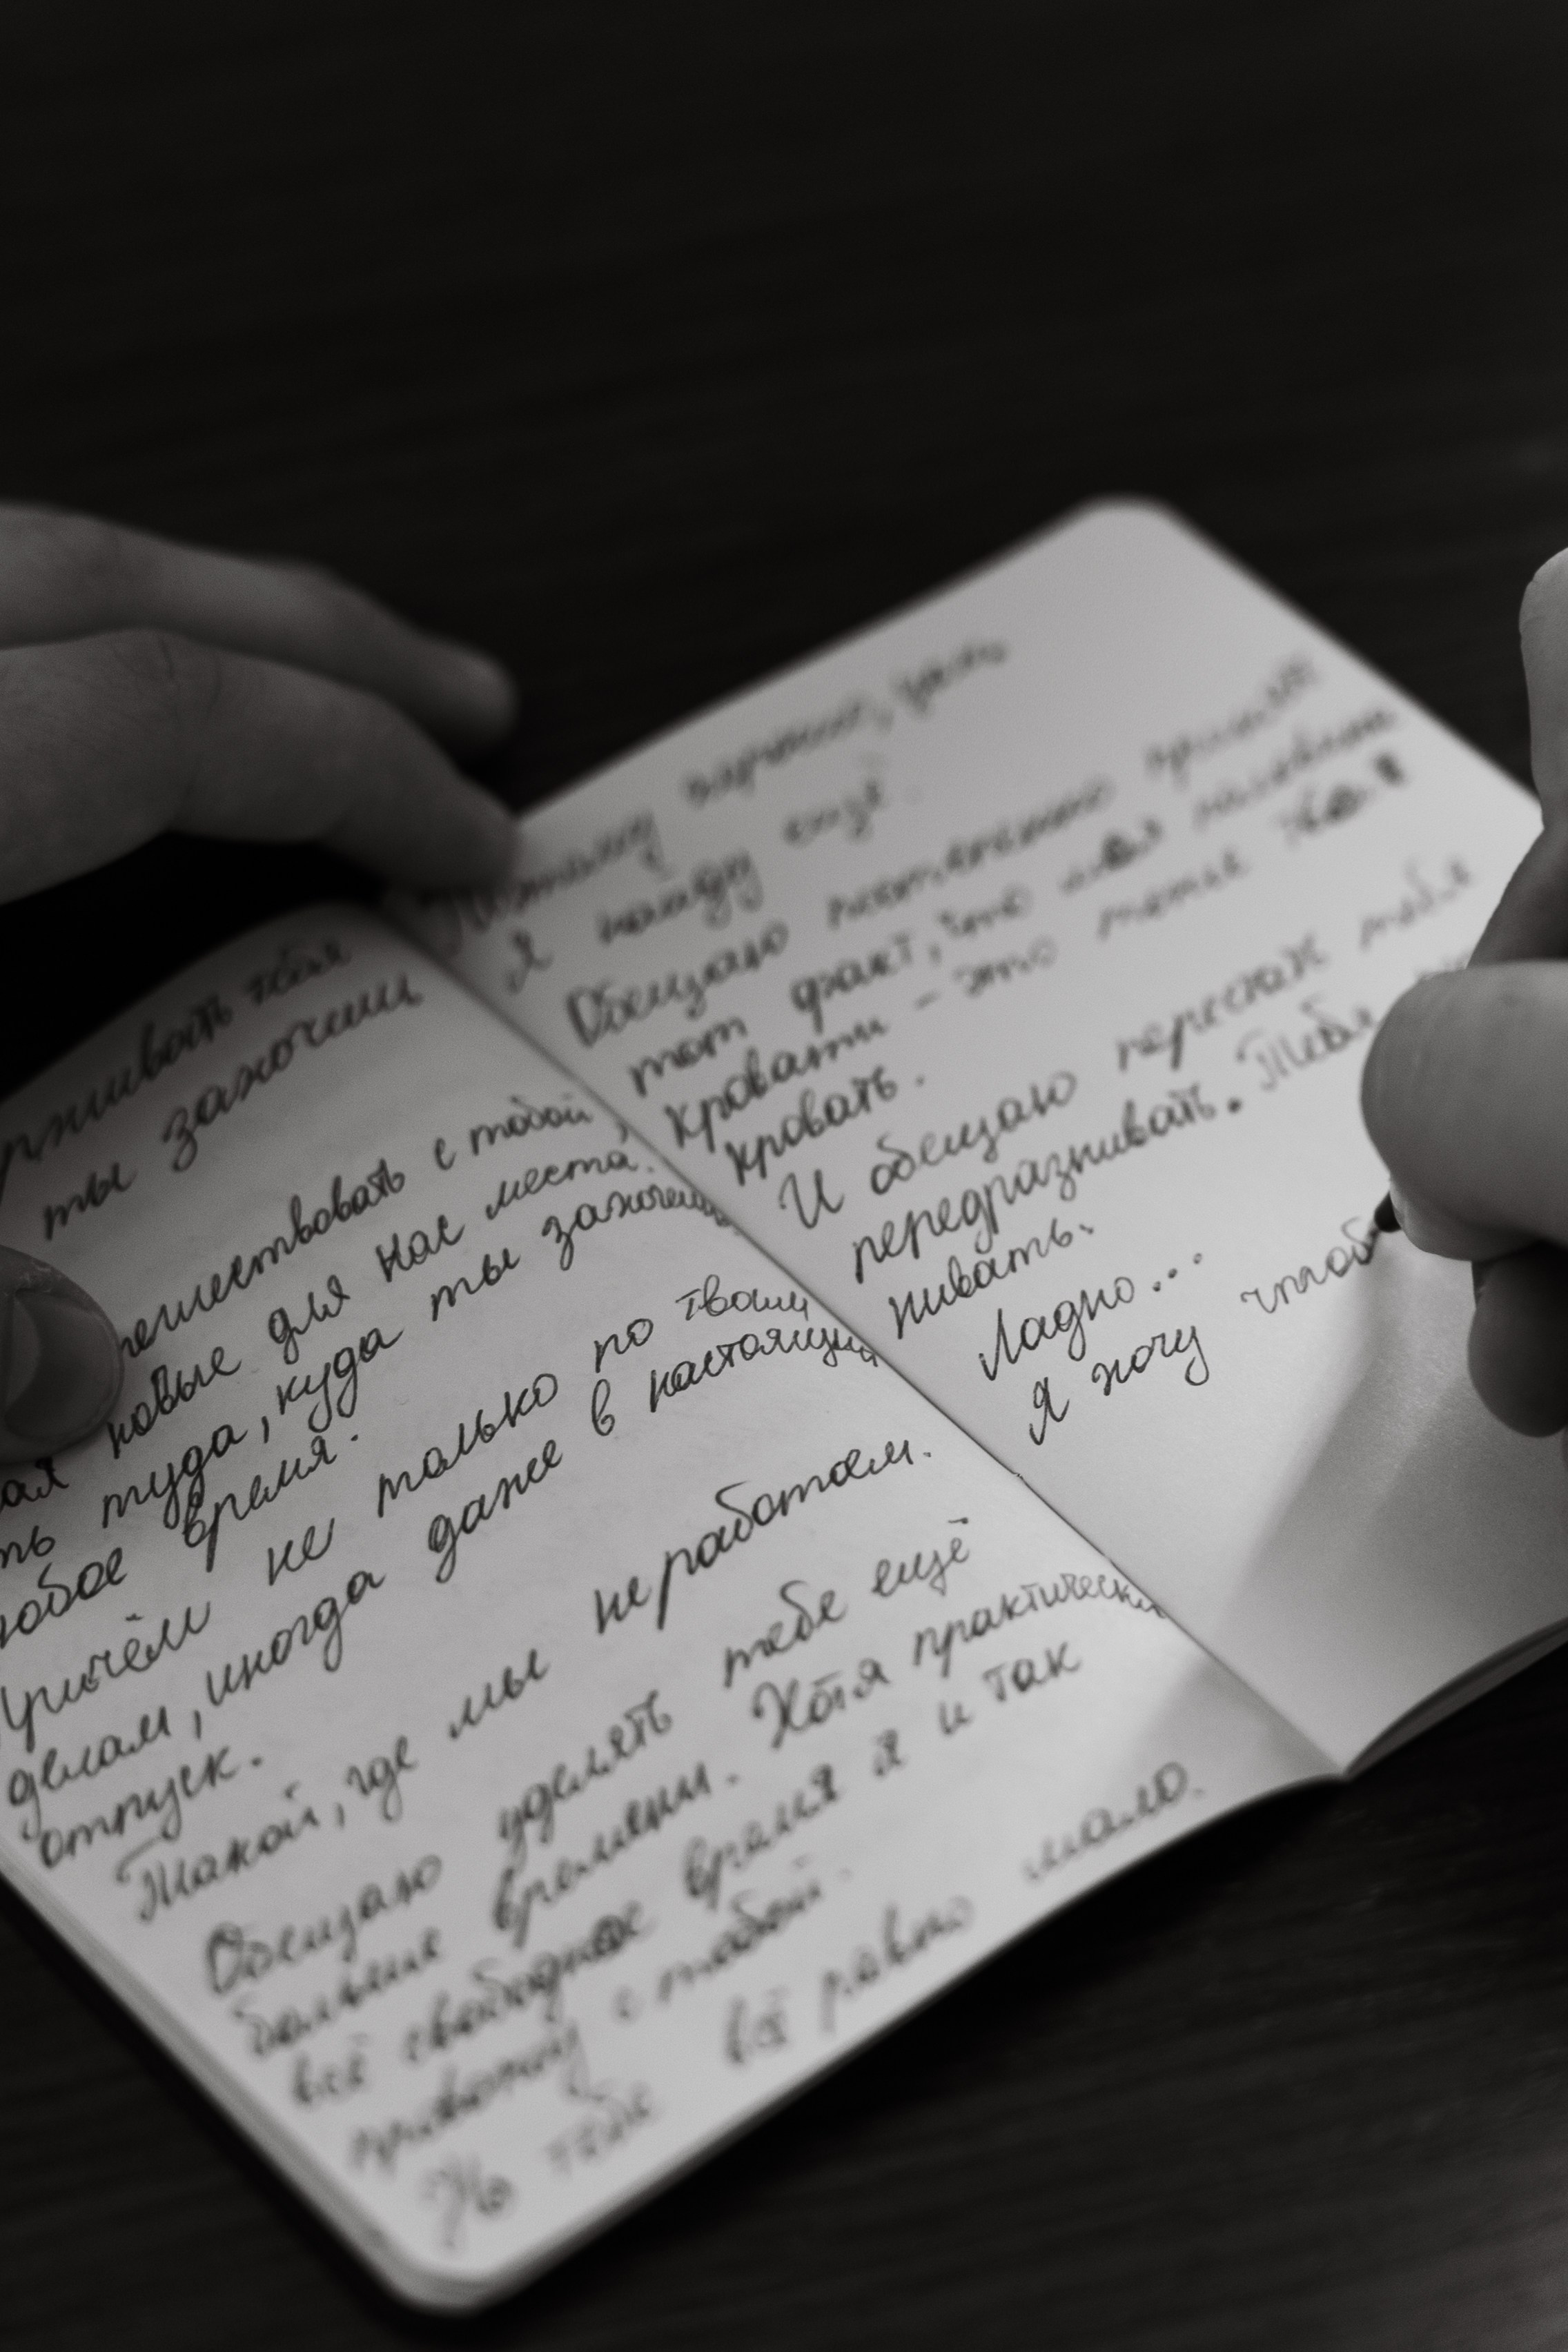 тебя
ты захочешь
с тобой,
новые для нас места.
туда, куда ты захочешь
любое время.
Причём не только по твоим
делам, иногда даже в настоящий
отпуск.
Такой, где мы не работаем.
Обещаю уделять тебе ещё
больше времени. Хотя практически
всё свободное время я и так
провожу с тобой.
Но тебе всё равно мало.
Поэтому
Я найду ещё.
Обещаю
тот факт, что моя половина
кровати - это тоже твоя
кровать.
И обещаю перестать тебя
передразнивать. Тебя
нивать.
Ладно...
Я хочу чтоб